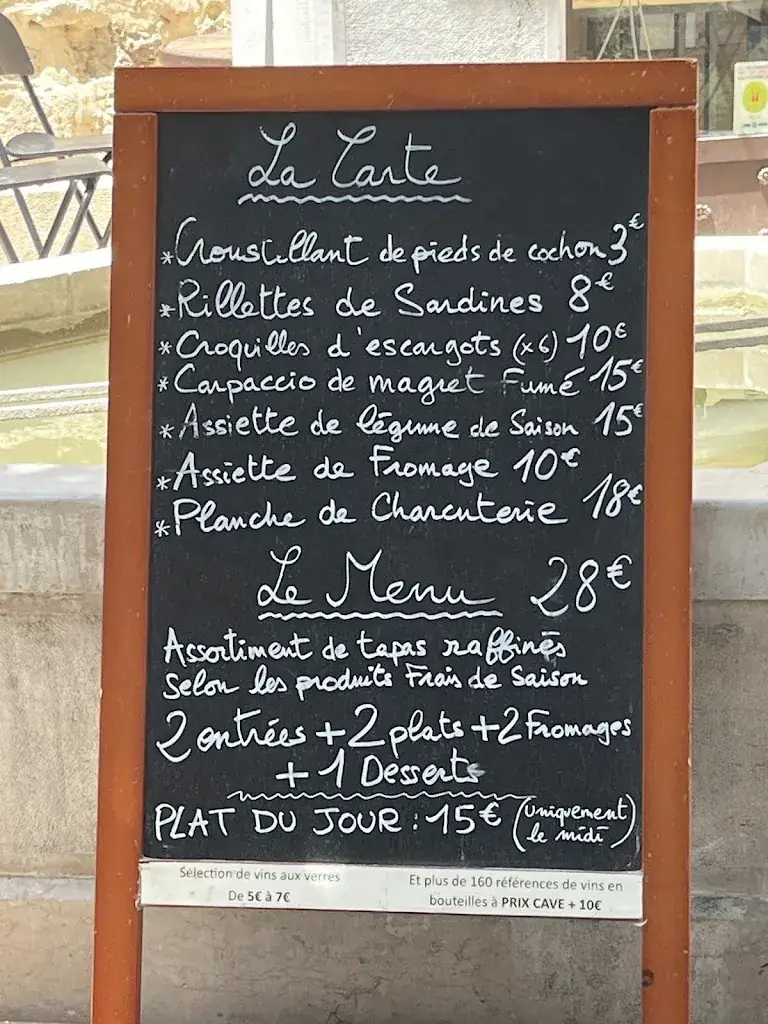 La Carte
* Croustillant de pieds de cochon 3€
* Rillettes de Sardines 8€
* Croquilles d'escargots (x6) 10€
* Carpaccio de magret Fumé 15€
* Assiette de légume de Saison 15€
* Assiette de Fromage 10€
* Planche de Charcuterie 18€
Le Menu 28€
Assortiment de tapas raffinés
Selon les produits Frais de Saison
2 entrées + 2 plats + 2 Fromages
+ 1 Desserts
PLAT DU JOUR : 15€ (uniquement le midi)
Sélection de vins aux verres
De 5€ à 7€
Et plus de 160 références de vins en
bouteilles à PRIX CAVE + 10€